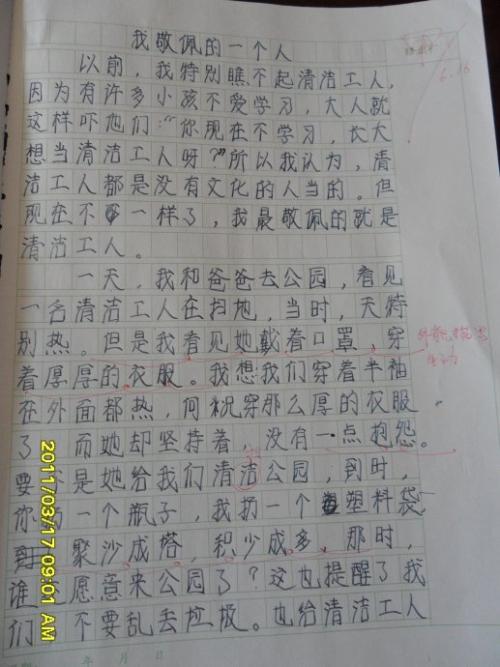 我敬佩的一个人
以前，我特别瞧不起清洁工人，
因为有许多小孩不爱学习，大人就
这样吓他们：“你现在不学习，长大
想当清洁工人呀？”所以我认为，清
洁工人都是没有文化的人当的。但
现在不一样了，我最敬佩的就是
清洁工人。
一天，我和爸爸去公园，看见
一名清洁工人在扫地，当时，天特
别热。但是我看见她戴着口罩，穿
着厚厚的衣服。我想我们穿着半袖
在外面都热，何况穿那么厚的衣服
了 而她却坚持着，没有一点抱怨。
要不是她给我们清洁公园，到时，
你 一个瓶子，我扔一个塑料袋，
聚沙成塔，积少成多，那时，
谁 愿意来公园了？这也提醒了我
们 不要乱丢垃圾。也给清洁工人
2011/03/17 09:01 AM
6.16
年 月 日